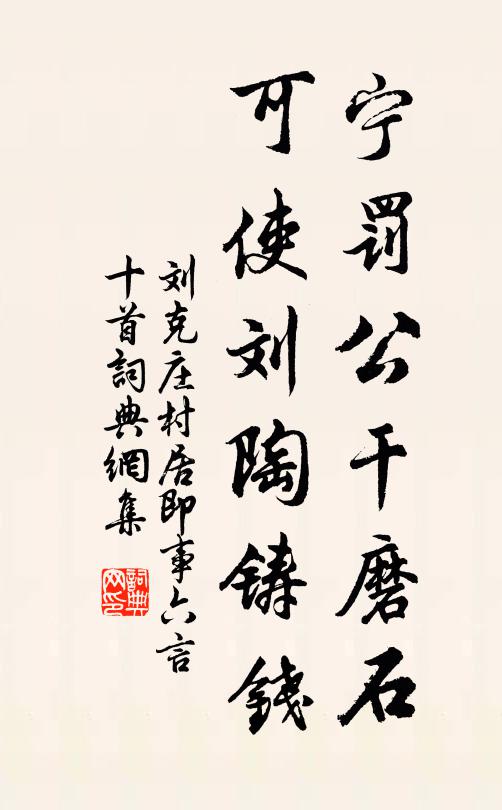 宁罚公干磨石
可使刘陶铸钱
刘克庄村居即事六言
十首詞典網集
詞典
网印